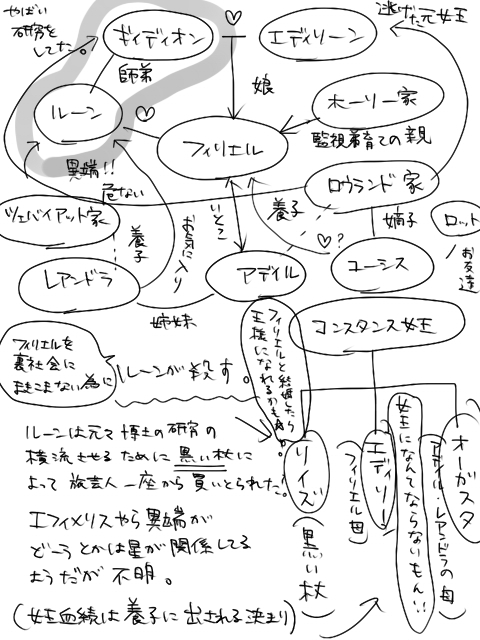 やばい
研究を
してた。
ギィディオン
♡
エディリーン
逃げた元女王
師弟
娘
ルーン
♡
フィリエル
ホーリー家
監視兼育ての親
異端!!
危ない
ロウランド家
ツェバイアット家
養子
お気に入り
いとこ
養子
♡?
嫡子
ロット
お友達
レアンドラ
アデイル
ユーシス
姉妹
コンスタンス女王
フィリエルを
裏社会に
まきこまない為に
ルーンが殺す。
フィリエルと結婚したら
王様になれるかも
ルーンは元々博士の研究の
させるために黒い杖に
よって旅芸人一座から買いとられた。
リイズ
(黒い杖)
エディリーン
(フィリエル母)
女王になんてならないもん!!
オーガスタ
(アデイル・レアンドラの母)
エフィメリスやら異端が
どーうとかは星が関係してる
ようだが不明。
(女王血続は養子に出される決まり)